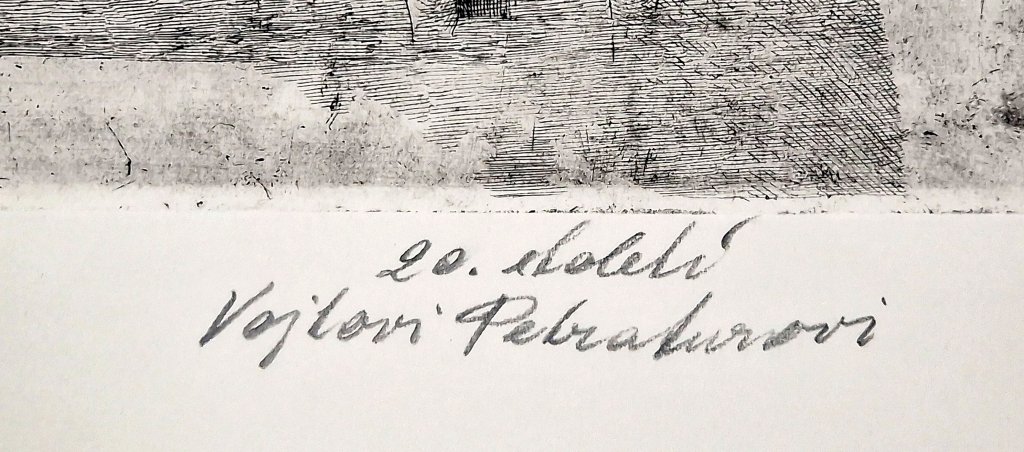 20. století
Vojtovi Petraturovi